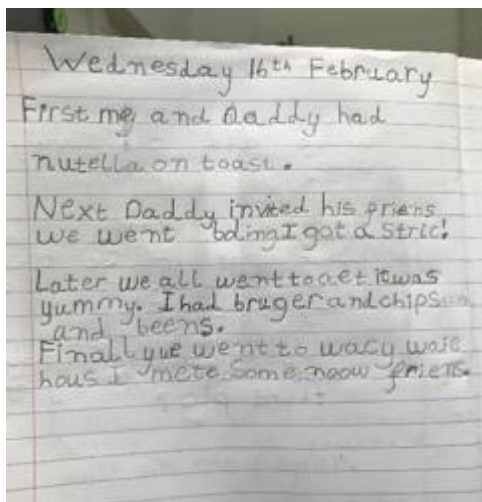 Wednesday 16th February
First me and Daddy had
nutella on toast.
Next Daddy invited his priens
we went boling I got a stric!
Later we all went to aet it was
yummy. I had bruger and chips
and beens.
Finally we went to wacy waie
hous I mete some noow friens.